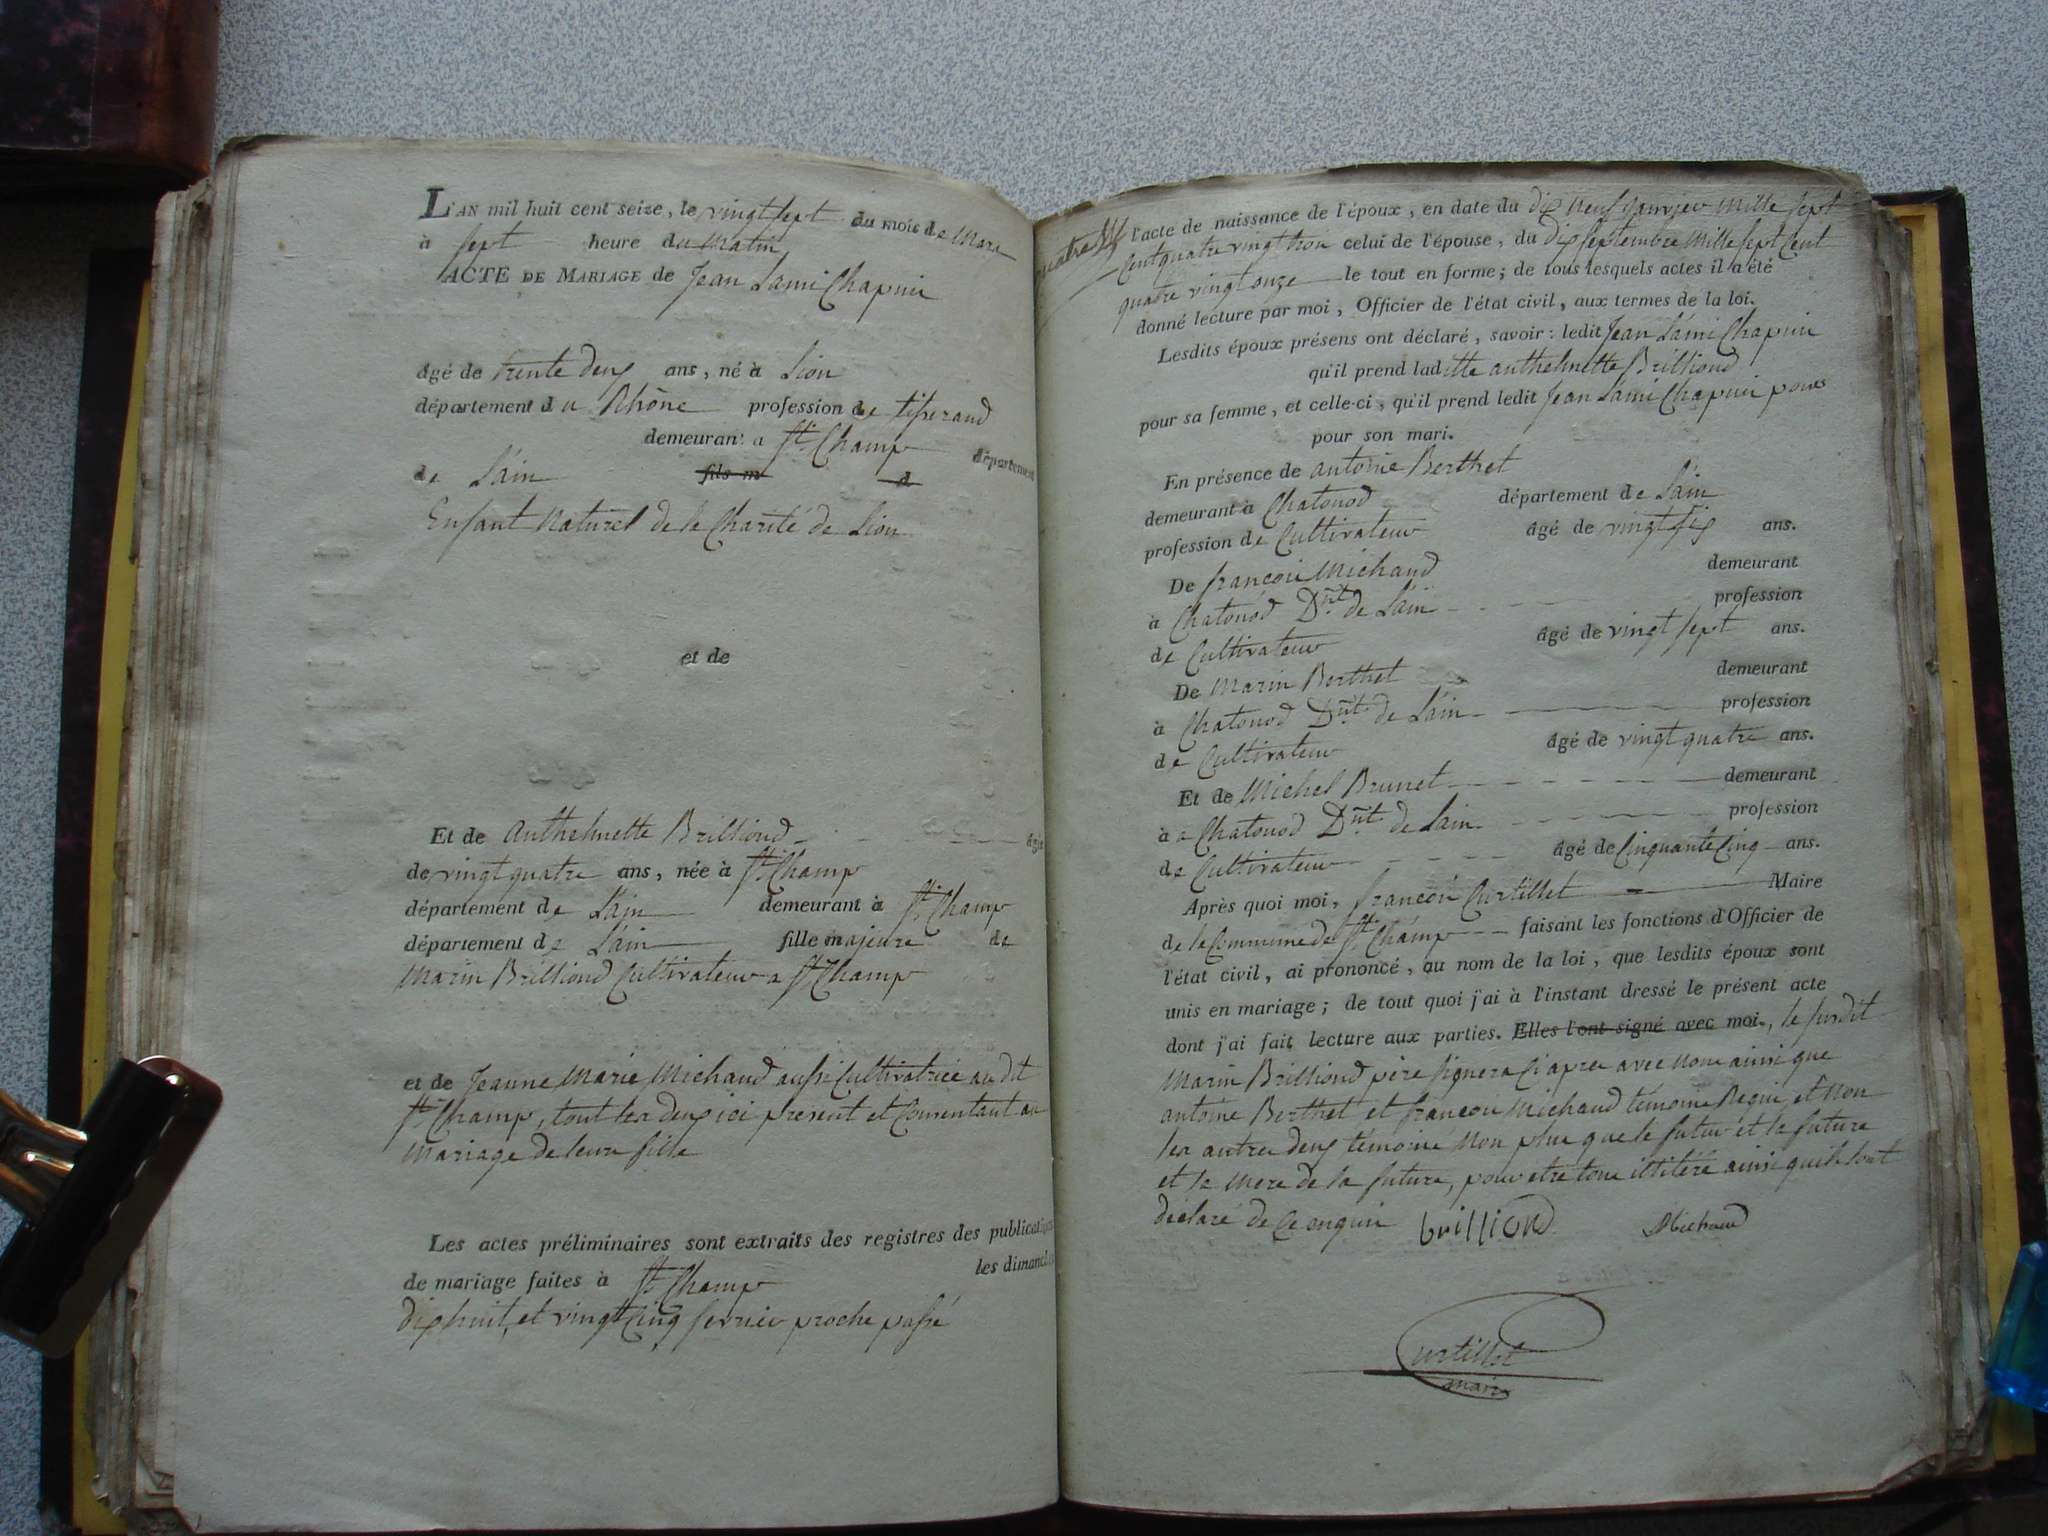 L'AN mil huit cent seize, le vingt sept du mois de Mars
à sept heure du Matin
ACTE DE MARIAGE de Jean Lami Chapuis
âgé de trente deux ans, né à Lion
département du Rhône profession de tisserand
demeurant a St. Champ département
de L'ain fils m d
Enfant Naturel de la Charité de Lion
et de
Et de Anthelmette Brilliond âgée
de vingt quatre ans, née à St. Champ
département de L'ain demeurant à St. Champ
département de L'ain fille majeure de
Marin Brilliond Cultivateur a St. Champ
et de Jeanne Marie Michaud aussi Cultivatrice au dit
St. Champ, tout les deux ici présent et Consentant au
Mariage de leur fille
Les actes préliminaires sont extraits des registres des publications
de mariage faites à St. Champ les dimanches
dix huit, et vingt Cinq fevrier proche passé
l'acte de naissance de l'époux, en date du dix Neuf Janvier Mille sept
Cent quatre vingt trois celui de l'épouse, du dix septembre Mille sept Cent
quatre vingt onze le tout en forme; de tous lesquels actes il a été
donné lecture par moi, Officier de l'état civil, aux termes de la loi.
Lesdits époux présens ont déclaré, savoir: ledit Jean Lami Chapuis
qu'il prend laditte anthelmette Brilliond
pour sa femme, et celle-ci, qu'il prend ledit Jean Lami Chapuis pour
pour son mari.
En présence de antoine Berthet
demeurant à Chatonod département de L'ain
profession de Cultivateur âgé de vingt six ans.
De francois Michaud demeurant
à Chatonod Dnt. de L'ain profession
de Cultivateur âgé de vingt sept ans.
De Marin Berthet demeurant
à Chatonod Dnt. de L'ain profession
de Cultivateur âgé de vingt quatre ans.
Et de Michel Brunet demeurant
à a Chatonod Dnt. de L'ain profession
de Cultivateur âgé de Cinquante Cinq ans.
Après quoi moi, francois Curtillet Maire
de la Commune de St. Champ faisant les fonctions d'Officier de
l'état civil, ai prononcé, au nom de la loi, que lesdits époux sont
unis en mariage; de tout quoi j'ai à l'instant dressé le présent acte
dont j'ai fait lecture aux parties. Elles l'ont signé avec moi, le susdit
Marin Brilliond père signera Ci apres avec Nous ainsi que
antoine Berthet et francois Michaud témoins Requis, et Non
les autres deux témoins Non plus que le futur et la future
et la Mere de la future, pour etre tous illitéré ainsi quils l'ont
déclaré de Ce enquis brilliond Michaud
Curtillet
maire